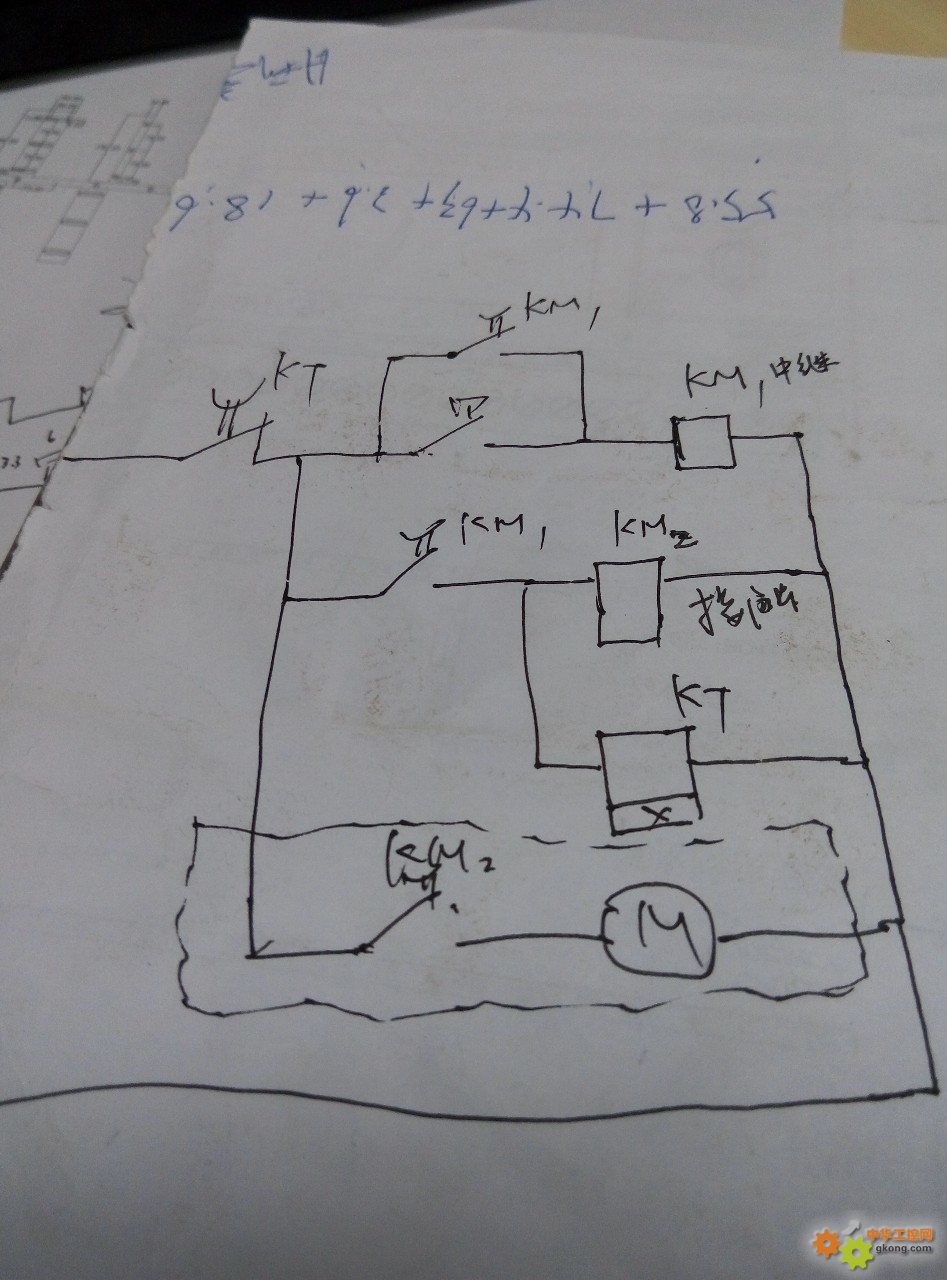 55.8 + 74.4 + 63 + 3.6 + 18.6
KM1
KT
KM1 中继
KM1
KM2
接触
KT
KM2
M
中华工控网
gkong.com